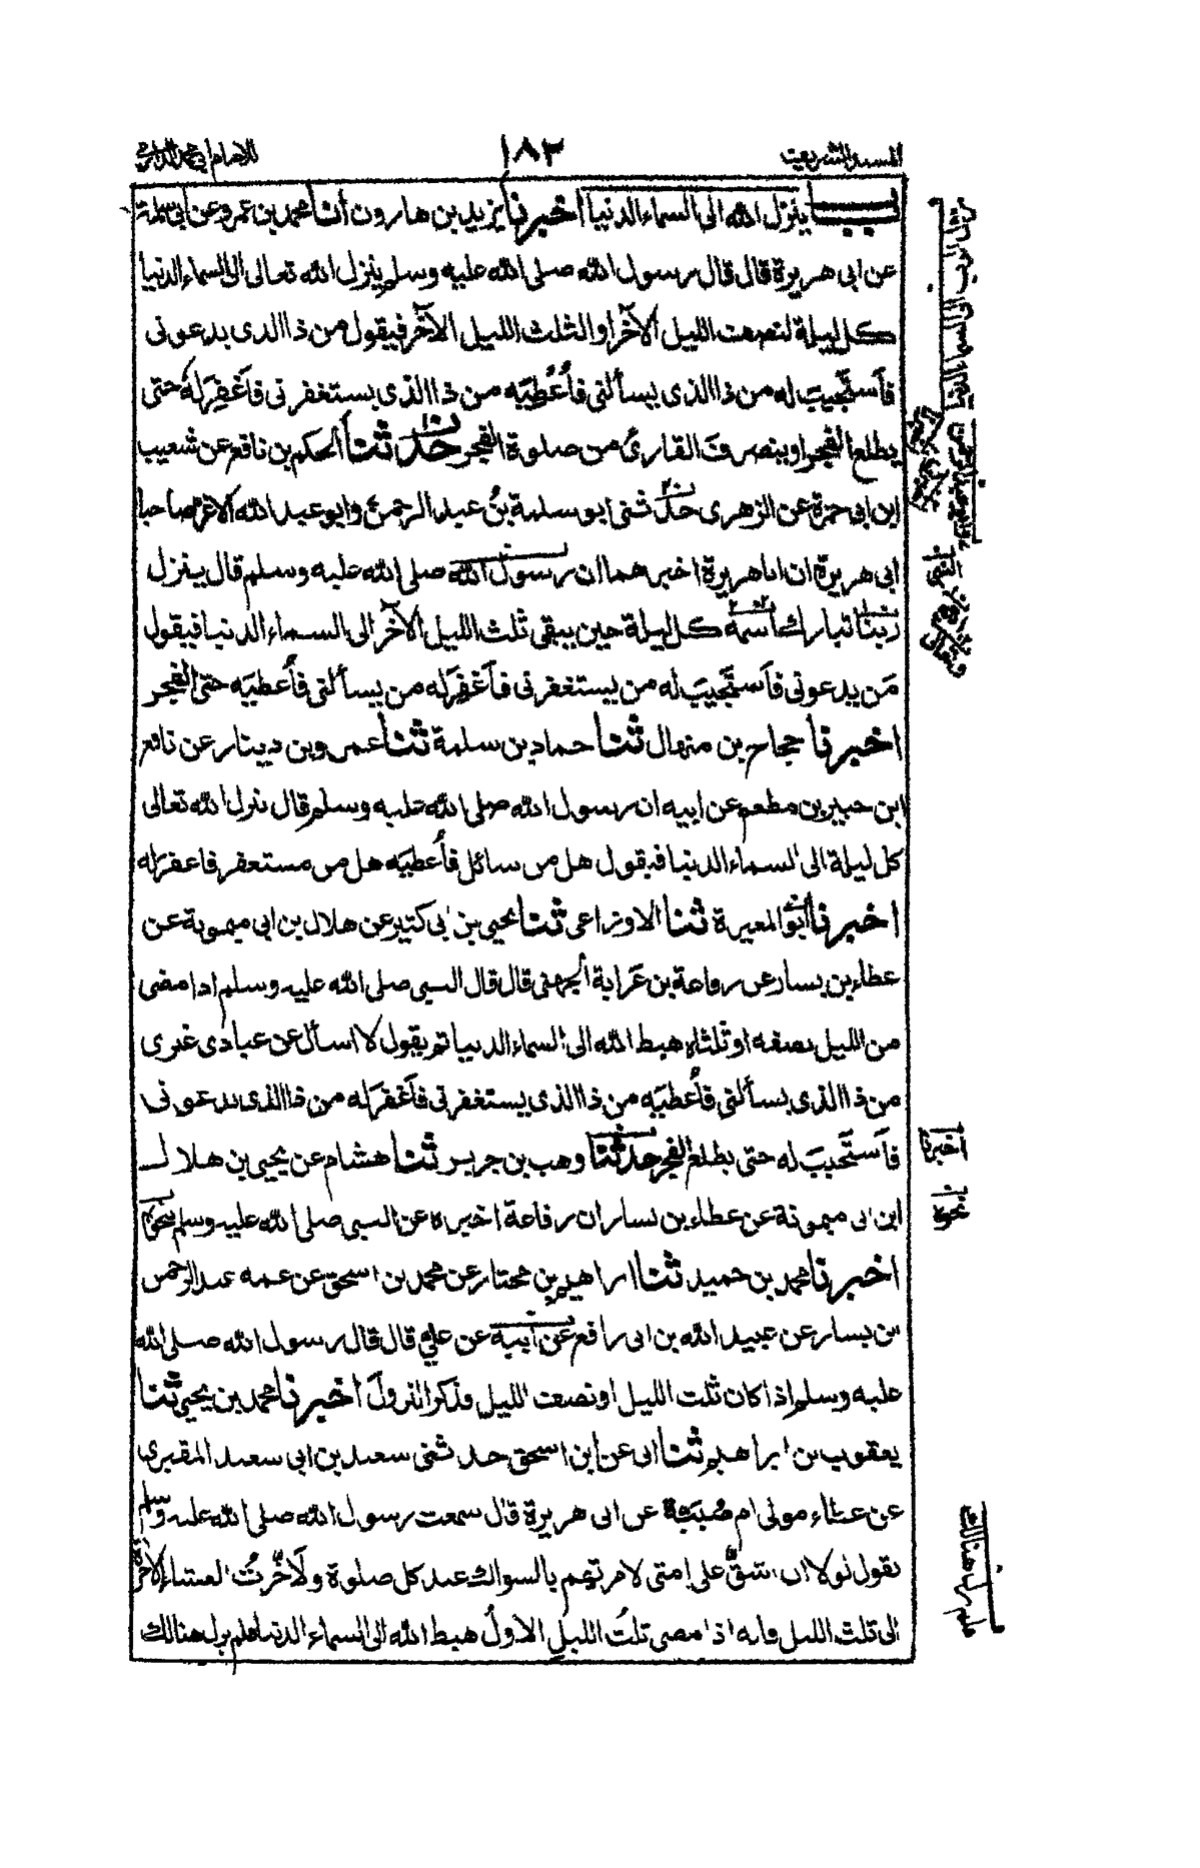 المسند الشريف ١٨٢ للامام ابي محمد الدارمي
باب ينزل الله الى السماء الدنيا اخبرنا يزيد بن هارون انا محمد بن عمرو عن ابي سلمة
عن ابى هريرة قال قال رسول الله صلى الله عليه وسلم ينزل الله تعالى الى السماء الدنيا
كل ليلة لنصف الليل الآخر او الثلث الليل الآخر فيقول من ذا الذى يدعونى
فأستجيبَ له من ذا الذى يسألنى فأُعطيَه من ذا الذى يستغفرنى فأَغفِرَ له حتى
يطلع الفجر او ينصرفَ القارئ من صلوة الفجر حدثنا الحكم بن نافع عن شعيب
ابن ابى حمزة عن الزهرى حدثنى ابو سلمة بنُ عبد الرحمن وابو عبد الله الاغر صاحبا
ابى هريرة ان ابا هريرة اخبرهما ان رسول الله صلى الله عليه وسلم قال ينزل
ربنا تبارك اسمه كل ليلة حين يبقى ثلث الليل الآخر الى السماء الدنيا فيقول
مَن يدعونى فأستجيبَ له من يستغفرنى فأَغفِرَ له من يسألنى فأُعطيَه حتى الفجر
اخبرنا حجاج بن منهال ثنا حماد بن سلمة ثنا عمرو بن دينار عن نافع
ابن جبير بن مطعم عن ابيه ان رسول الله صلى الله عليه وسلم قال ينزل الله تعالى
كل ليلة الى السماء الدنيا فيقول هل من سائل فأُعطيَه هل من مستغفر فاغفرَ له
اخبرنا ابو المغيرة ثنا الاوزاعى ثنا يحيى بن ابى كثير عن هلال بن ابى ميمونة عن
عطاء بن يسار عن رفاعة بن عَرابة الجهنى قال قال النبى صلى الله عليه وسلم اذا مضى
من الليل نصفه او ثلثاه هبط الله الى السماء الدنيا ثم يقول لا اسأل عن عبادى غيرى
من ذا الذى يسألنى فأُعطيَه من ذا الذى يستغفرنى فأَغفرَ له من ذا الذى يدعونى
فأَستجيبَ له حتى يطلع الفجر حدثنا وهب بن جرير ثنا هشام عن يحيى بن هلال
ابن ابى ميمونة عن عطاء بن يسار ان رفاعة اخبره عن النبى صلى الله عليه وسلم نحوه
اخبرنا محمد بن حميد ثنا ابراهيم بن مختار عن محمد بن اسحق عن عمه عبد الرحمن
بن يسار عن عبيد الله بن ابى رافع عن ابيه عن على قال قال رسول الله صلى الله
عليه وسلم اذا كان ثلث الليل او نصف الليل فذكر النزولَ اخبرنا محمد بن يحيى ثنا
يعقوب بن ابراهيم ثنا ابى عن ابن اسحق حدثنى سعيد بن ابى سعيد المقبرى
عن عطاء مولى ام صُبَيّة عن ابى هريرة قال سمعت رسول الله صلى الله عليه وسلم
يقول لولا ان اشقَّ على امتى لامرتهم بالسواك عند كل صلوة ولأخّرتُ العشاء الآخرة
الى ثلث الليل فانه اذا مضى ثلثُ الليل الاولُ هبط الله الى السماء الدنيا فلم يزل هنالك
اخبرنا
نحوه
فلم يزل هنالك